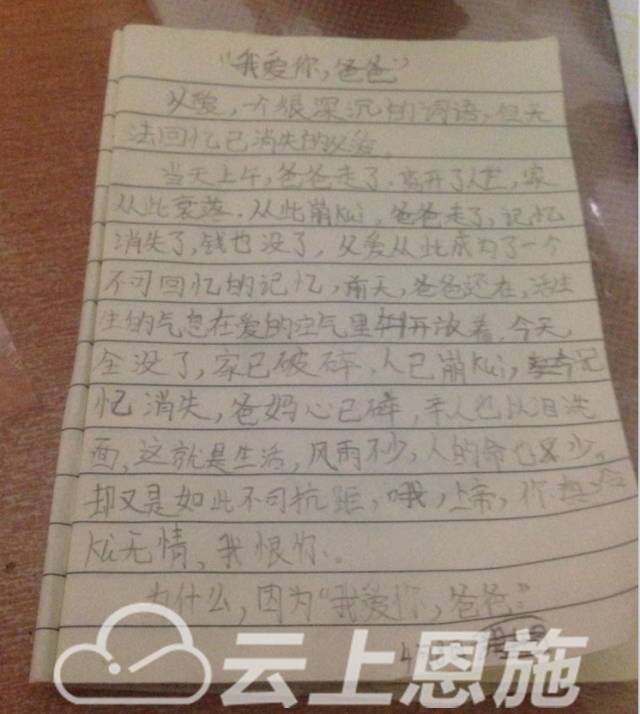 “我爱你，爸爸”
父爱，一个很深沉的词语，但无
法回忆已消失的父爱。
当天上午，爸爸走了，离开了人世，家
从此衰落，从此崩kui，爸爸走了，记忆
消失了，钱也没了，父爱从此成为了一个
不可回忆的记忆，前天，爸爸还在，活生
生的气息在爱的空气里开放着，今天，
全没了，家已破碎，人已崩kui，记
忆消失，爸妈心已碎，亲人也以泪洗
面，这就是生活，风雨不少，人的命也不少。
却又是如此不可抗距，哦，上帝，你
kui无情，我恨你。
为什么，因为“我爱你，爸爸”
云上恩施